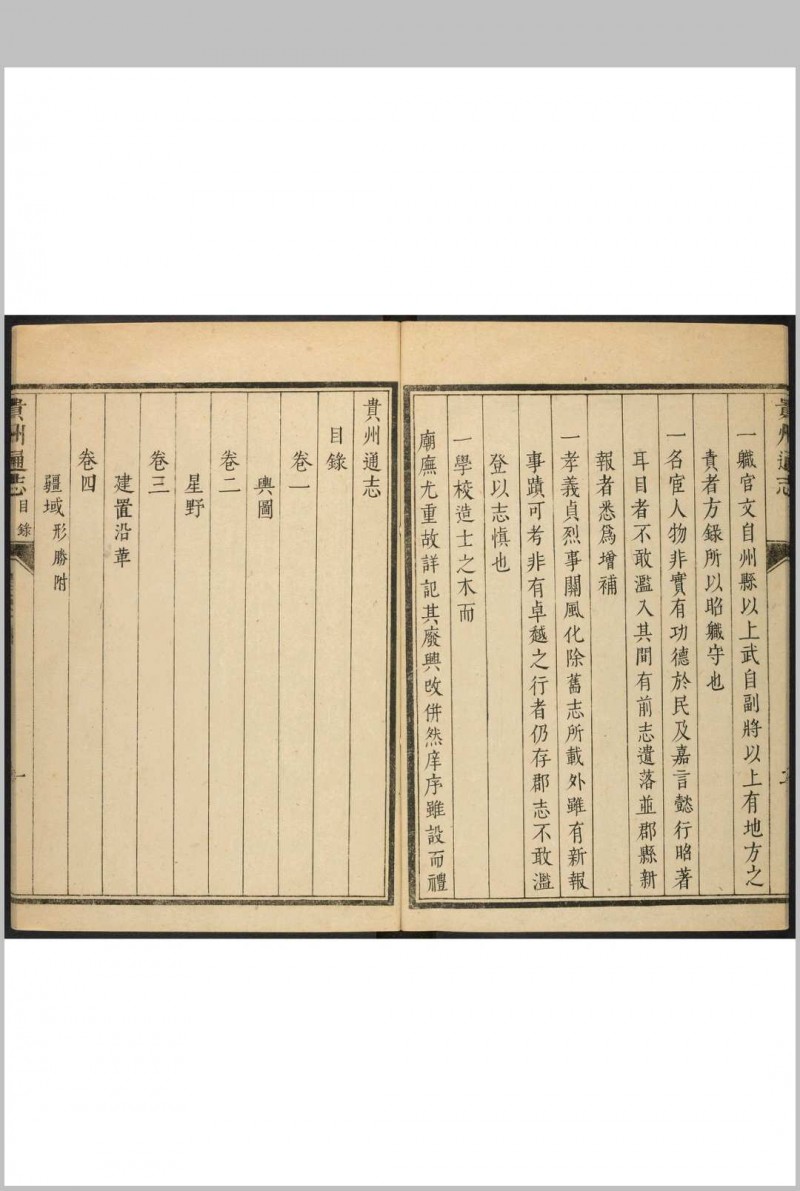 貴州通志
二
一職官文自州縣以上武自副將以上有地方之
責者方錄所以昭職守也
一名宦人物非實有功德於民及嘉言懿行昭著
耳目者不敢濫入其間有前志遺落並郡縣新
報者悉爲增補
一孝義貞烈事關風化除舊志所載外雖有新報
事蹟可考非有卓越之行者仍存郡志不敢濫
登以志愼也
一學校造士之木而
廟廡尤重故詳記其廢興改併然庠序雖設而禮
貴州通志
目錄
卷一
輿圖
卷二
星野
卷三
建置沿革
卷四
疆域形勝附
貴州通志
目錄
一